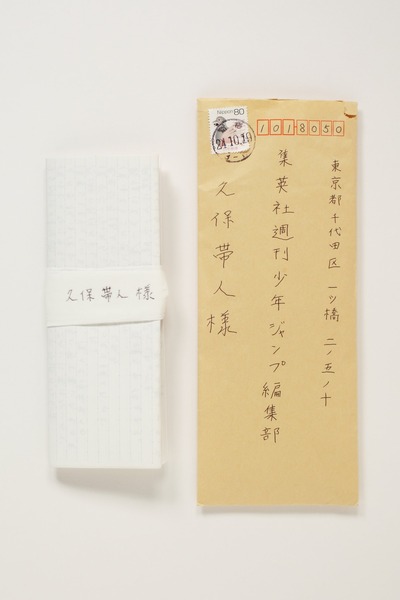 久保帯人 様
Nippon 80
24.10.19
1018050
東京都千代田区一ツ橋二ノ五ノ十
集英社週刊少年ジャンプ編集部
久保帯人様